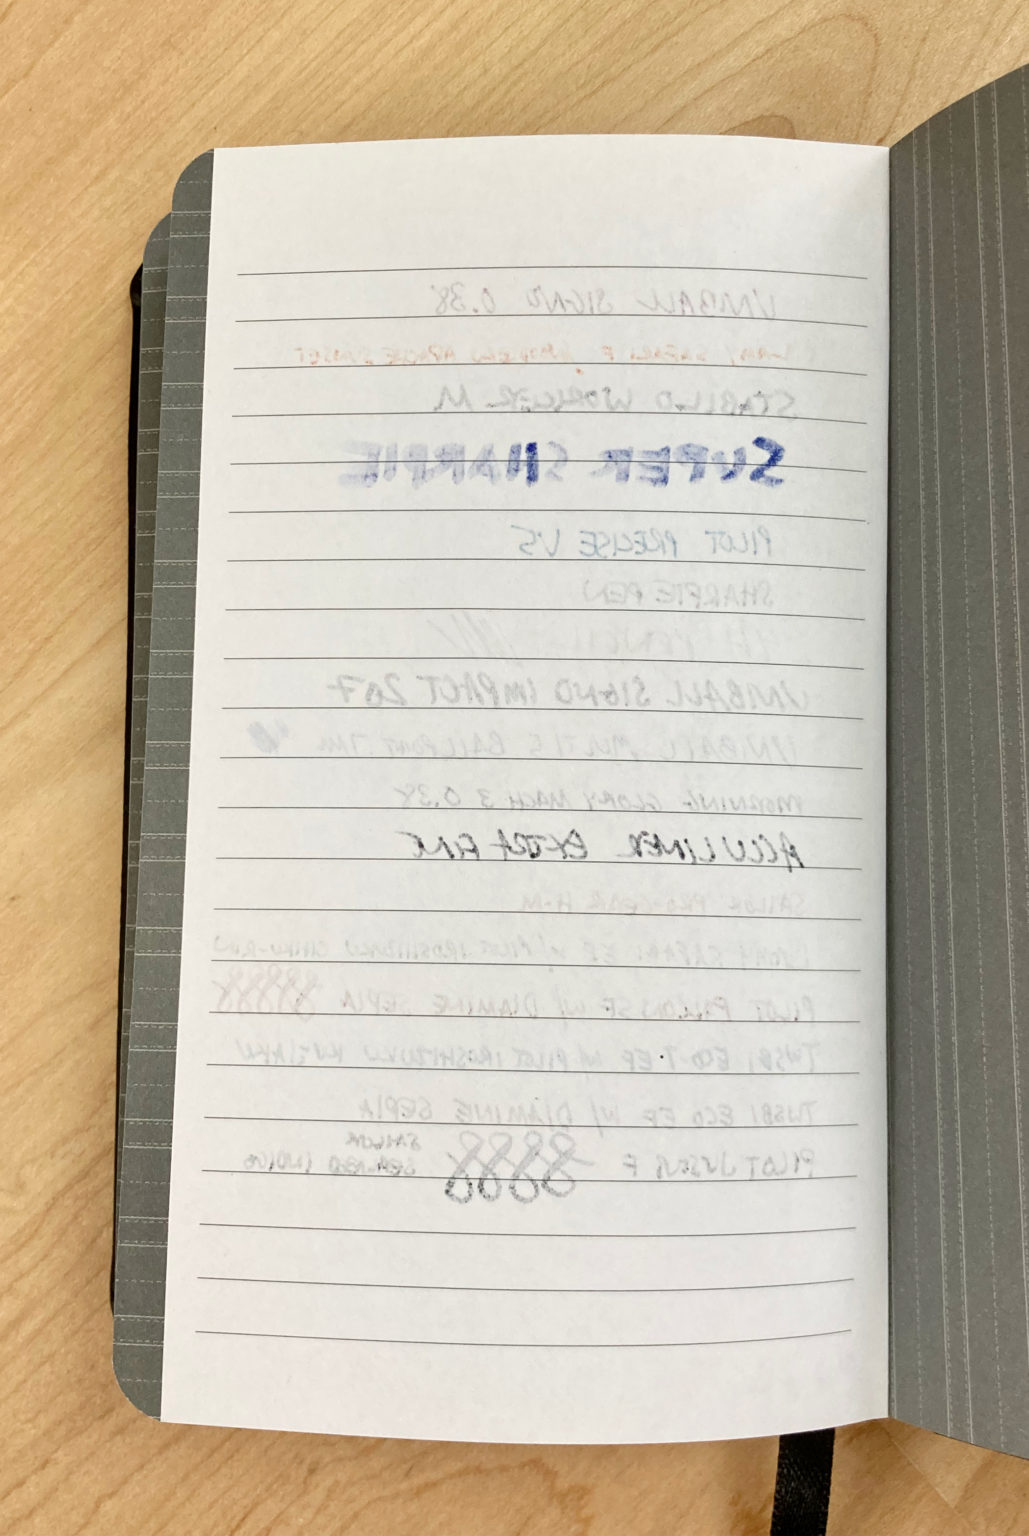 UNIBALL SIGNO 0.38
LAMY SAFARI F APACHE SUNSET
STABILO WORKER M
SUPER SHARPIE
PILOT PRECISE V5
SHARPIE PEN
PENCIL
UNIBALL SIGNO IMPACT 207
UNIBALL BALLPOINT
MORNING GLORY MACH 3 0.38
ACCULINER EXTRA FINE
SAILOR PRO-GEAR H-M
LAMY SAFARI EF W/ PILOT IROSHIZUKU CHIKU-RIN
PILOT SF W/ DIAMINE SEPIA 88888
TWSBI ECO-T EF W/ PILOT IROSHIZUKU
TWSBI ECO EF W/ DIAMINE SEPIA
PILOT F 8888 SAILOR